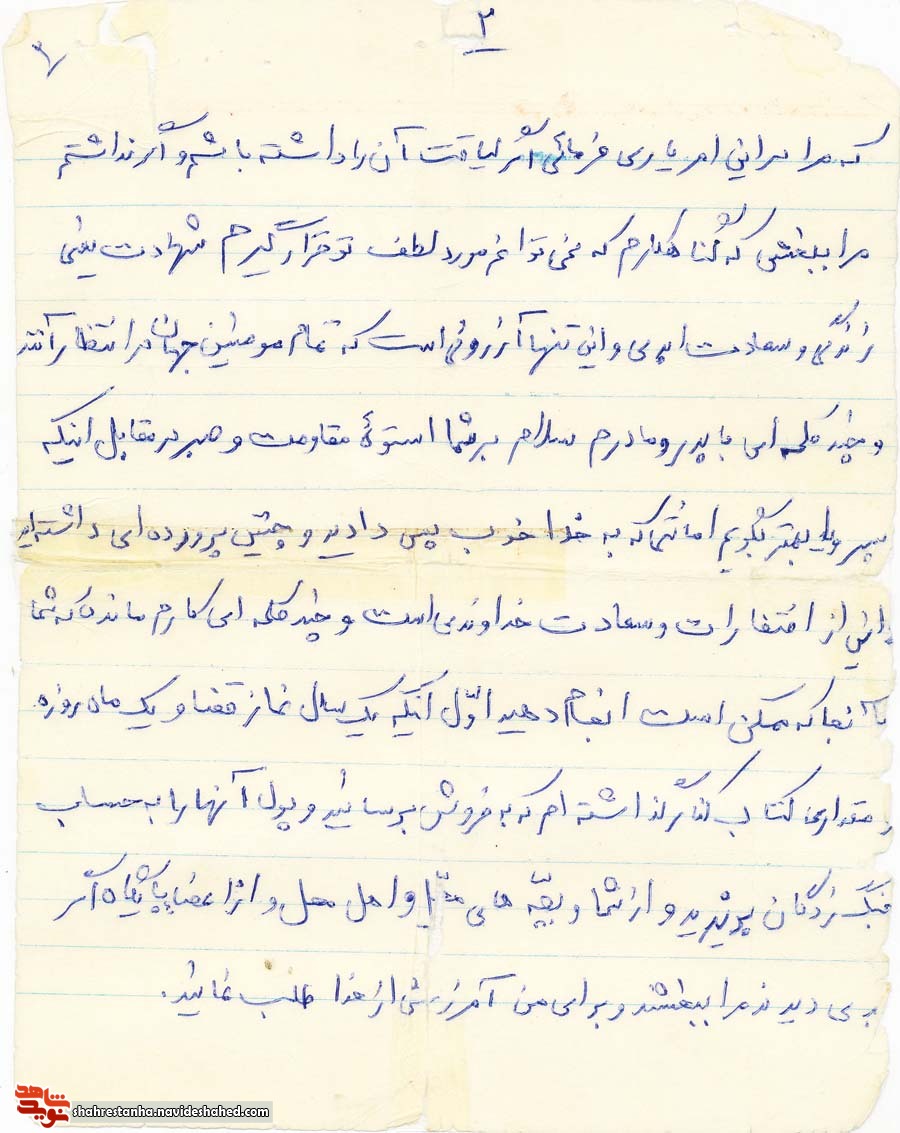 ۲
که مرا در این امر یاری فرمائی اگر لیاقت آن را داشته باشم و اگر نداشتم
مرا ببخشی که گناهکارم که نمی توانم مورد لطف تو قرار گیرم شهادت یعنی
زندگی و سعادت ابدی و این تنها آرزوئی است که تمام مومنین جهان در انتظار آنند
و چند کلمه ای با پدر و مادرم سلام بر شما استوۀ مقاومت و صبر در مقابل اینکه
پسر و یا بهتر بگویم امانتی که به خدا خوب پس دادید و چنین پرورده ای داشته اید
و این از افتخارات و سعادت خداوندی است و چند کلمه ای کارم مانده که شما
تا آنجا که ممکن است انجام دهید اوّل آنکه یک سال نماز قضا و یک ماه روزه
و مقداری کتاب کنار گذاشته ام که به فروش برسانید و پول آنها را به حساب
جنگ زدگان بریزید و از شما و بچّه های و اهل محل و از اعضا پایگاه اگر
بدی دیدند مرا ببخشند و برای من آمرزش از خدا طلب نمائید.
نوید شاهد
shahrestanha.navideshahed.com